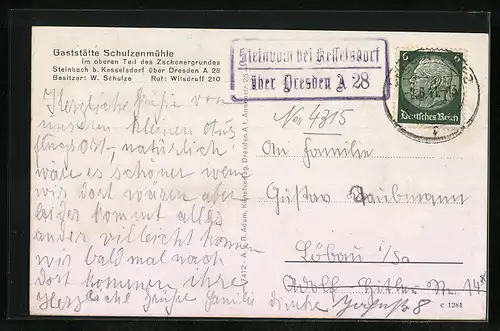 Gaststätte Schulzenmühle
im oberen Teil des Zschonergrundes
Steinbach b. Kesselsdorf über Dresden A 28
Besitzer: W. Schulze Ruf: Wilsdruff 210
Herzliche Grüße von
unseren kleinen Aus
flugsort, natürlich
wäre es schöner wenn
wir dort wären aber
leider kommt alles
anders vielleicht können
wir bald mal nach
dort kommen ihre
Herzliche Grüße Familie
bei Kesselsdorf
über Dresden A 28
6 6
Deutsches Reich
No 4315
An Familie
Gustav Daubmann
Löbau i/Sa
Adolf Hitler Str. 14
A. & R. Adam, Kunstverlag, Dresden A 1
c 1281